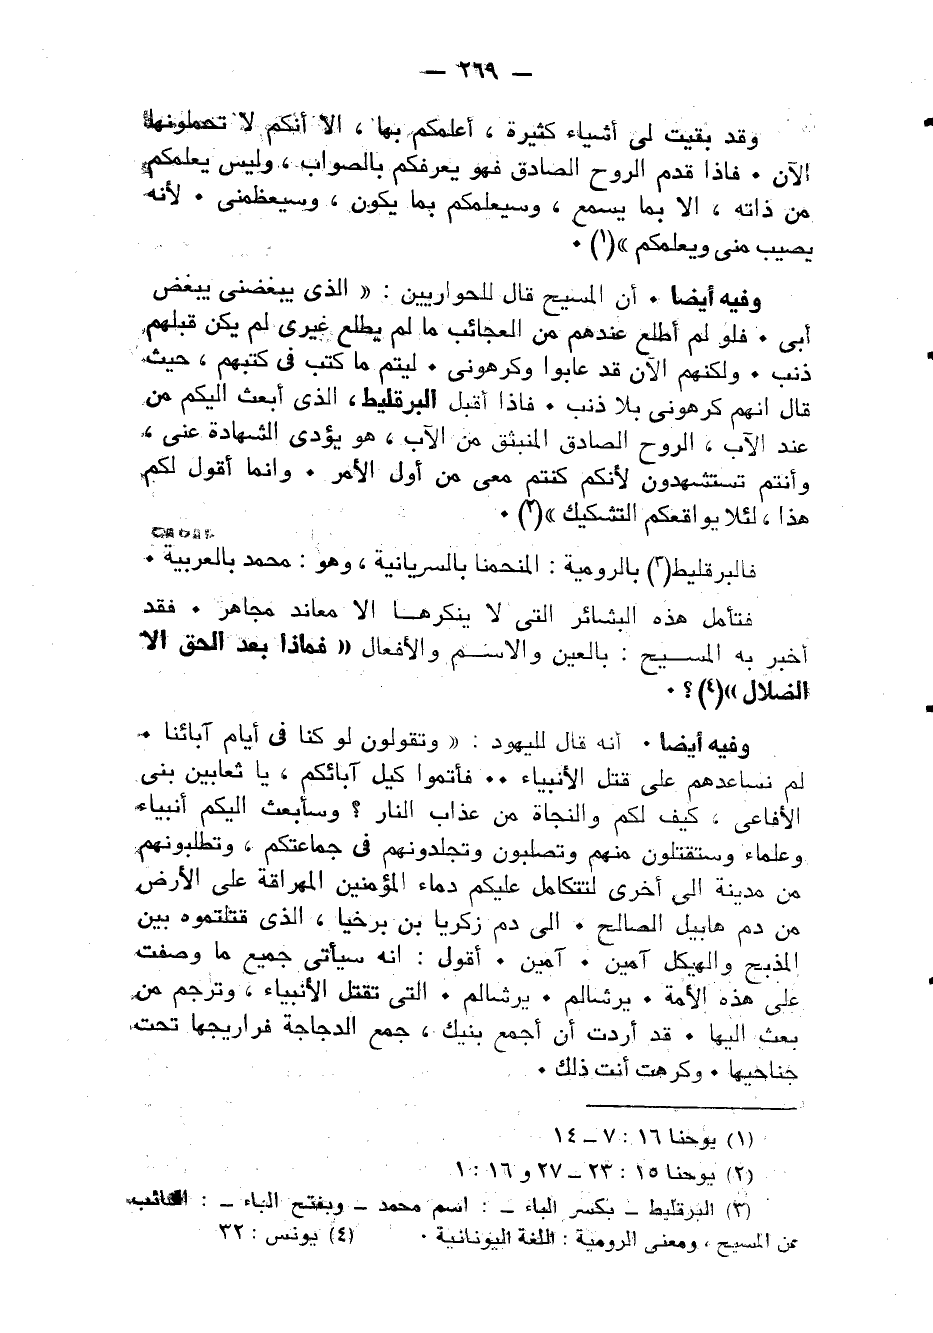 — ٢٦٩ —
وقد بقيت لى أشياء كثيرة ، أعلمكم بها ، الا أنكم لا تحملونها
الآن • فاذا قدم الروح الصادق فهو يعرفكم بالصواب ، وليس يعلمكم
من ذاته ، الا بما يسمع ، وسيعلمكم بما يكون ، وسيعظمنى • لأنه
يصيب منى ويعلمكم »(١) •
وفيه أيضا • أن المسيح قال للحواريين : « الذى يبغضنى يبغض
أبى • فلو لم أطلع عندهم من العجائب ما لم يطلع غيرى لم يكن قبلهم
ذنب • ولكنهم الآن قد عابوا وكرهونى • ليتم ما كتب فى كتبهم ، حيث
قال انهم كرهونى بلا ذنب • فاذا أقبل البرقليط ، الذى أبعث اليكم من
عند الآب ، الروح الصادق المنبثق من الآب ، هو يؤدى الشهادة عنى ،
وأنتم تستشهدون لأنكم كنتم معى من أول الأمر • وانما أقول لكم
هذا ، لئلا يواقعكم التشكيك »(٢) •
فالبرقليط(٣) بالرومية : المنحمنا بالسريانية ، وهو : محمد بالعربية •
فتأمل هذه البشائر التى لا ينكرهـا الا معاند مجاهر • فقد
أخبر به المسـيح : بالعين والاسـم والأفعال « فماذا بعد الحق الا
الضلال »(٤) ؟ •
وفيه أيضا • أنه قال لليهود : « وتقولون لو كنا فى أيام آبائنا •
لم نساعدهم على قتل الأنبياء •• فأتموا كيل آبائكم ، يا ثعابين بنى
الأفاعى ، كيف لكم والنجاة من عذاب النار ؟ وسأبعث اليكم أنبياء
وعلماء وستقتلون منهم وتصلبون وتجلدونهم فى جماعتكم ، وتطلبونهم
من مدينة الى أخرى لتتكامل عليكم دماء المؤمنين المهراقة على الأرض
من دم هابيل الصالح • الى دم زكريا بن برخيا ، الذى قتلتموه بين
المذبح والهيكل آمين • آمين • أقول : انه سيأتى جميع ما وصفت
على هذه الأمة • يرشالم • يرشالم • التى تقتل الأنبياء ، وترجم من
بعث اليها • قد أردت أن أجمع بنيك ، جمع الدجاجة فراريجها تحت
جناحيها • وكرهت أنت ذلك •
(١) يوحنا ١٦ : ٧ – ١٤
(٢) يوحنا ١٥ : ٢٣ – ٢٧ و ١٦ : ١
(٣) البرقليط – بكسر الباء – : اسم محمد – وبفتح الباء – : النائب
عن المسيح ، ومعنى الرومية : اللغة اليونانية • (٤) يونس : ٣٢